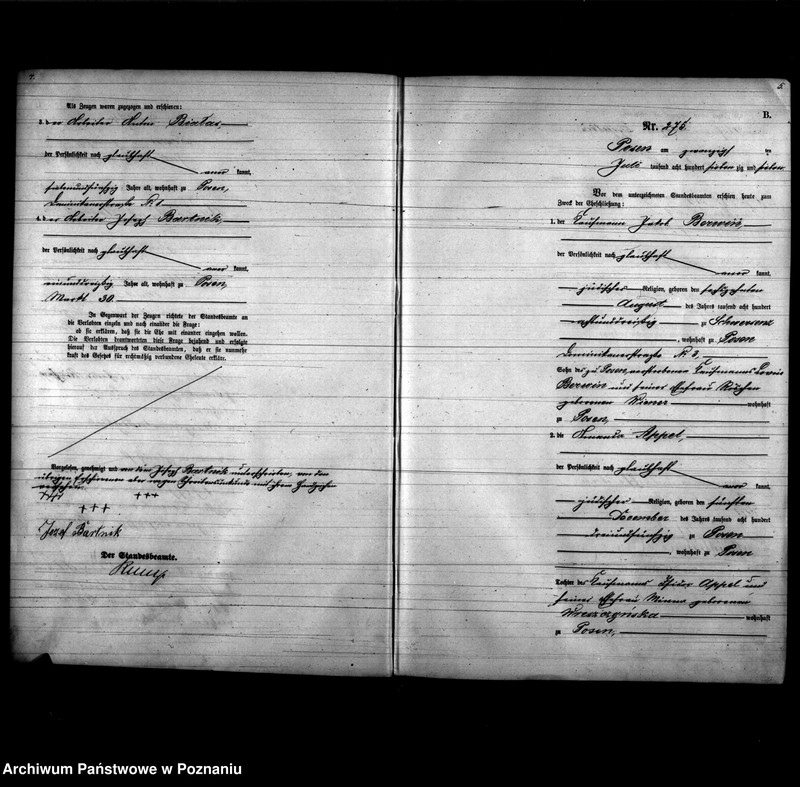 Als Zeugen waren zugezogen und erschienen:
3. der Arbeiter Anton Bialas,
der Persönlichkeit nach glaubhaft
aner kannt,
siebenundfünfzig Jahre alt, wohnhaft zu Posen,
Dominikanerstraße N. 1
4. der Arbeiter Joseph Bartnik,
der Persönlichkeit nach glaubhaft
aner kannt,
einunddreißig Jahre alt, wohnhaft zu Posen,
Markt 30.
In Gegenwart der Zeugen richtete der Standesbeamte an
die Verlobten einzeln und nach einander die Frage:
ob sie erklären, daß sie die Ehe mit einander eingehen wollen.
Die Verlobten beantworteten diese Frage bejahend und erfolgte
hierauf der Ausspruch des Standesbeamten, daß er sie nunmehr
kraft des Gesetzes für rechtmäßig verbundene Eheleute erkläre.
Vorgelesen, genehmigt und von dem Joseph Bartnik unterschrieben, von den
übrigen Erschienenen aber wegen Schreibensunkunde mit ihrem Handzeichen
versehen.
+++ +++
+++
Jozef Bartnik
Der Standesbeamte.
5
B.
Nr. 275.
Posen am zwanzigsten
Juli tausend acht hundert sieben zig und sieben
Vor dem unterzeichneten Standesbeamten erschien heute zum
Zweck der Eheschließung:
1. der Kaufmann Jakob Berwin,
der Persönlichkeit nach glaubhaft
aner kannt,
jüdischer Religion, geboren den sechszehnten
August des Jahres tausend acht hundert
achtunddreißig zu Schwersenz
, wohnhaft zu Posen
Dominikanerstraße N. 3,
Sohn des zu Posen verstorbenen Kaufmanns Louis
Berwin und seiner Ehefrau Röschen
geborenen Wiener wohnhaft
zu Posen,
2. die Amanda Appel,
der Persönlichkeit nach glaubhaft
aner kannt,
jüdischer Religion, geboren den fünften
December des Jahres tausend acht hundert
dreiundfünfzig zu Posen
, wohnhaft zu Posen
Tochter des Kaufmanns Isidor Appel und
seiner Ehefrau Minna geborenen
Wreszczynska wohnhaft
zu Posen,
Archiwum Państwowe w Poznaniu